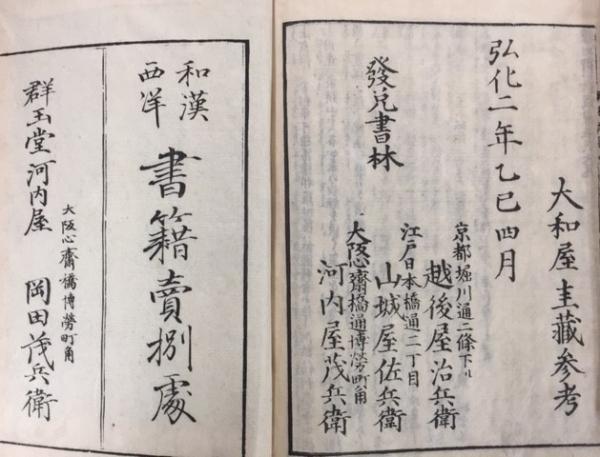 大和屋圭藏参考
弘化二年乙巳四月
發兌書林
京都堀川通二條下ル
越後屋治兵衛
江戸日本橋通二丁目
山城屋佐兵衛
大阪心齋橋通博勞町角
河内屋茂兵衛
和漢
西洋
書籍賣捌處
大阪心齋橋博勞町角
群玉堂河内屋 岡田茂兵衛